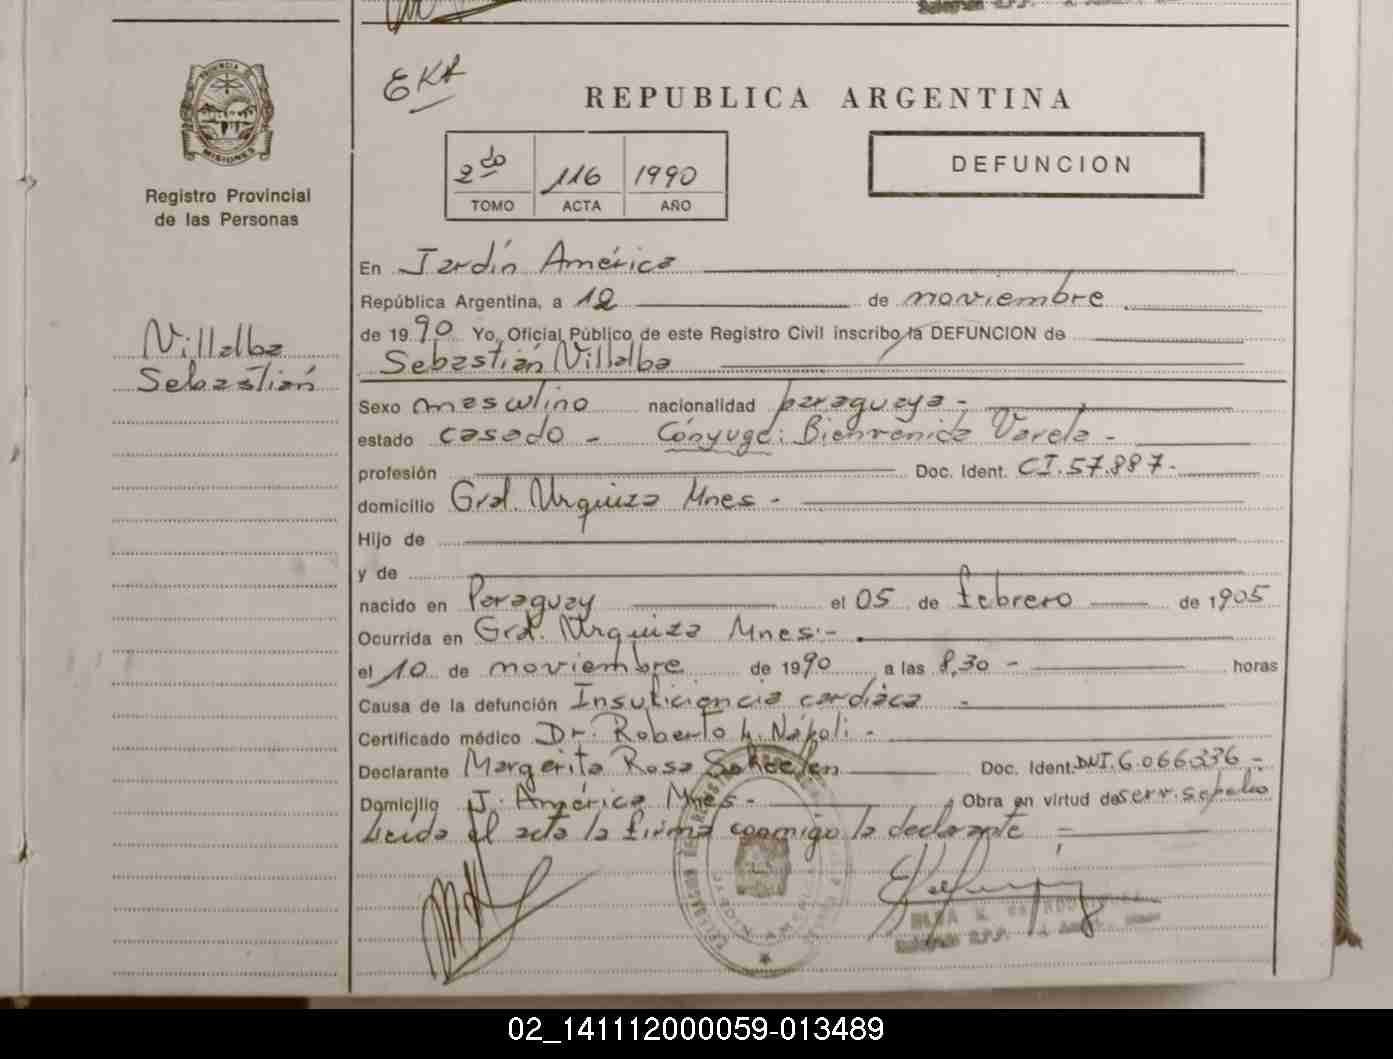 EKA
REPUBLICA ARGENTINA
PROVINCIA DE
MISIONES
Registro Provincial
de las Personas
2do 116 1990
TOMO ACTA AÑO
DEFUNCION
En Jardín América
República Argentina, a 12 de noviembre
de 1990 Yo, Oficial Público de este Registro Civil inscribo la DEFUNCION de
Sebastián Villalba
Villalba
Sebastián
Sexo masculino nacionalidad paraguaya -
estado casado - Cónyuge: Bienvenida Varela -
profesión Doc. Ident. CI.57.887-
domicilio Gral. Urquiza Mnes -
Hijo de
y de
nacido en Paraguay el 05 de febrero de 1905
Ocurrida en Gral. Urquiza Mnes.-
el 10 de noviembre de 1990 a las 8,30 - horas
Causa de la defunción Insuficiencia cardiàca -
Certificado médico Dr. Roberto Nápoli -
Declarante Margarita Rosa Doc. Ident. DNI.6.066.336 -
Domicilio J. América Mnes - Obra en virtud de serv. sepelio
Leida el acta la firma conmigo la declarante -
02_141112000059-013489